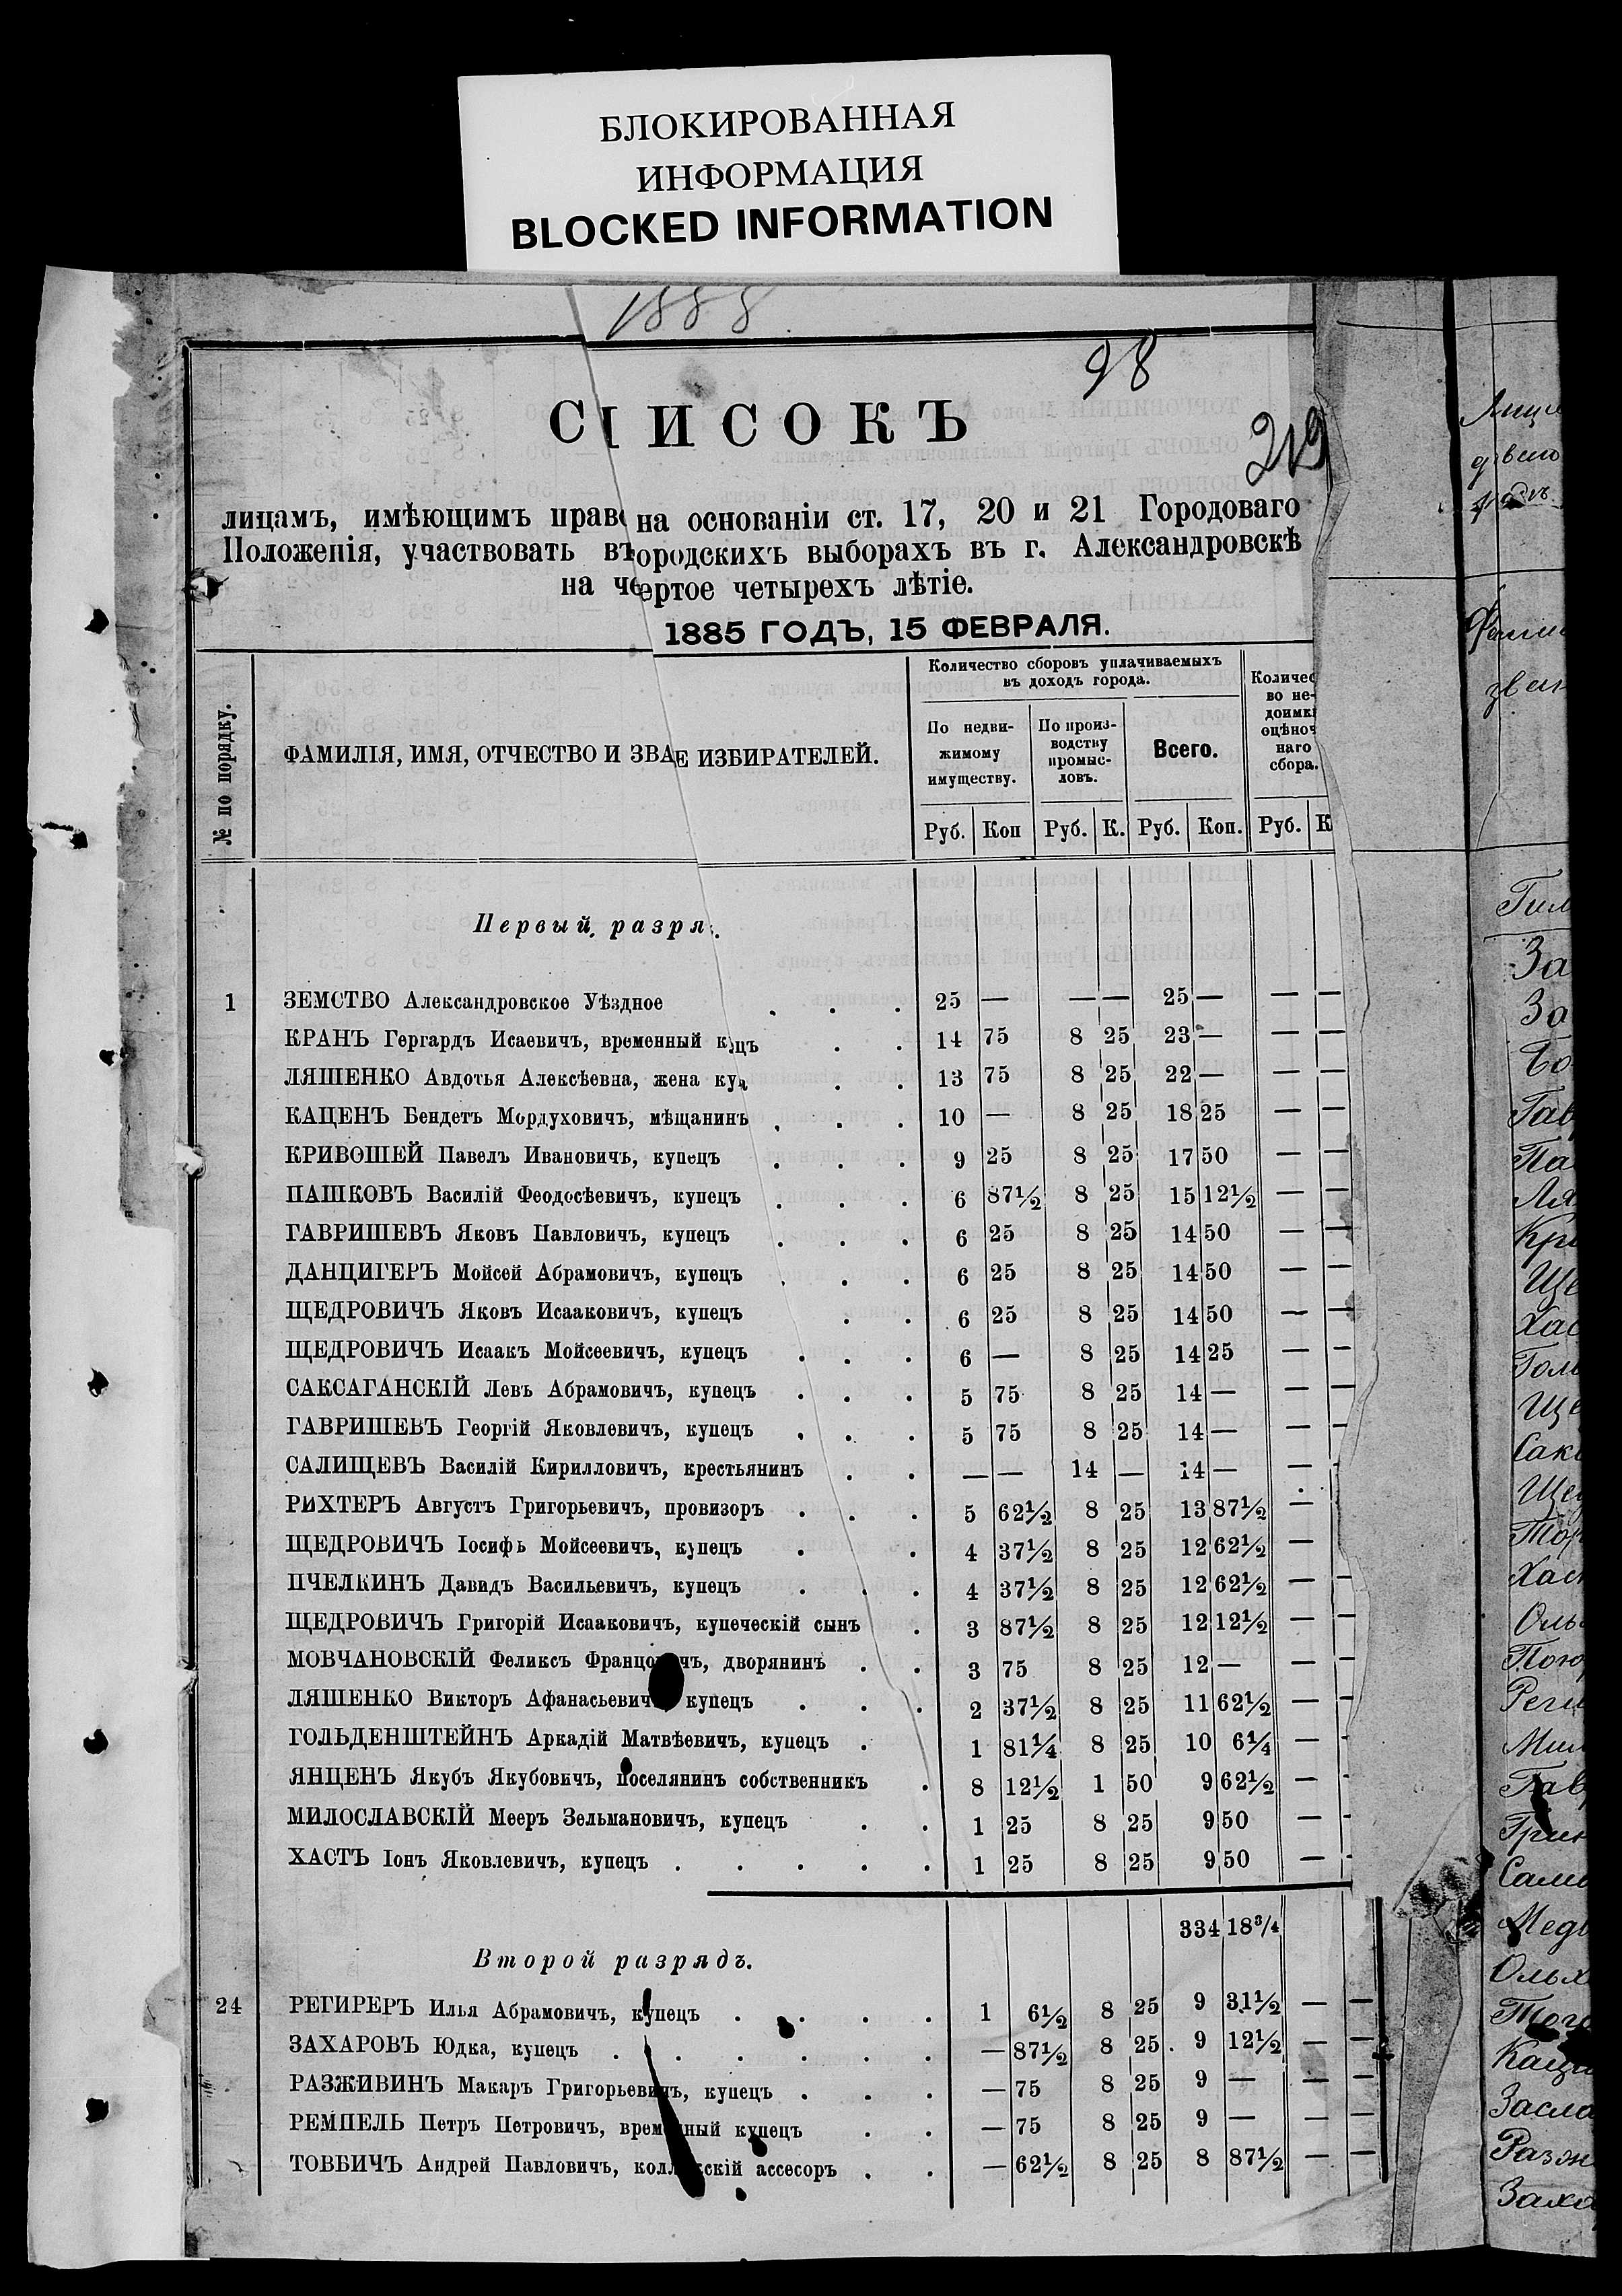 БЛОКИРОВАННАЯ
ИНФОРМАЦИЯ
BLOCKED INFORMATION
1888
98
СПИСОКЪ
219
лицамъ, имѣющимъ право на основаніи ст. 17, 20 и 21 Городоваго
Положенія, участвовать въ городскихъ выборахъ въ г. Александровскѣ
на четвертое четырехъ лѣтіе.
1885 ГОДЪ, 15 ФЕВРАЛЯ.
№ по порядку.
ФАМИЛІЯ, ИМЯ, ОТЧЕСТВО И ЗВАНІЕ ИЗБИРАТЕЛЕЙ.
Количество сборовъ уплачиваемыхъ въ доходъ города.
По недвижимому имуществу.
По производству промысловъ.
Всего.
Количество недоимки оцѣночнаго сбора.
Руб. Коп Руб. К. Руб. Коп. Руб. К
Первый разря
1 ЗЕМСТВО Александровское Уѣздное . . . 25 — — — 25 — — —
КРАНЪ Гергардъ Исаевичъ, временный купецъ . . 14 75 8 25 23 — — —
ЛЯШЕНКО Авдотья Алексѣевна, жена куп . . 13 75 8 25 22 — — —
КАЦЕНЪ Бендетъ Мордуховичъ, мѣщанинъ . . . 10 — 8 25 18 25 — —
КРИВОШЕЙ Павелъ Ивановичъ, купецъ . . . 9 25 8 25 17 50 — —
ПАШКОВЪ Василій Феодосѣевичъ, купецъ . . . 6 87½ 8 25 15 12½ — —
ГАВРИШЕВЪ Яковъ Павловичъ, купецъ . . . 6 25 8 25 14 50 — —
ДАНЦИГЕРЪ Мойсей Абрамовичъ, купецъ . . . 6 25 8 25 14 50 — —
ЩЕДРОВИЧЪ Яковъ Исааковичъ, купецъ . . 6 25 8 25 14 50 — —
ЩЕДРОВИЧЪ Исаакъ Мойсеевичъ, купецъ . . . 6 — 8 25 14 25 — —
САКСАГАНСКІЙ Левъ Абрамовичъ, купецъ . . . 5 75 8 25 14 — — —
ГАВРИШЕВЪ Георгій Яковлевичъ, купецъ . . . 5 75 8 25 14 — — —
САЛИЩЕВЪ Василій Кирилловичъ, крестьянинъ . . — — 14 — 14 — — —
РИХТЕРЪ Августъ Григорьевичъ, провизоръ . . . 5 62½ 8 25 13 87½ —
ЩЕДРОВИЧЪ Іосифъ Мойсеевичъ, купецъ . . 4 37½ 8 25 12 62½ —
ПЧЕЛКИНЪ Давидъ Васильевичъ, купецъ . . . 4 37½ 8 25 12 62½ — —
ЩЕДРОВИЧЪ Григорій Исааковичъ, купеческій сынъ . 3 87½ 8 25 12 12½ — —
МОВЧАНОВСКІЙ Феликсъ Францовичъ, дворянинъ . . 3 75 8 25 12 — — —
ЛЯШЕНКО Викторъ Афанасьевичъ купецъ . . . 2 37½ 8 25 11 62½ — —
ГОЛЬДЕНШТЕЙНЪ Аркадій Матвѣевичъ, купецъ . 1 81¼ 8 25 10 6¼ — —
ЯНЦЕНЪ Якубъ Якубовичъ, поселянинъ собственникъ . 8 12½ 1 50 9 62½ — —
МИЛОСЛАВСКІЙ Мееръ Зельмановичъ, купецъ . . 1 25 8 25 9 50 — —
ХАСТЪ Іонъ Яковлевичъ, купецъ . . . . . 1 25 8 25 9 50 — —
334 18¾
Второй разрядъ.
24 РЕГИРЕРЪ Илья Абрамовичъ, купецъ . . . . 1 6½ 8 25 9 31½ — —
ЗАХАРОВЪ Юдка, купецъ . . . . . . — 87½ 8 25 9 12½ — —
РАЗЖИВИНЪ Макаръ Григорьевичъ, купецъ . . . — 75 8 25 9 — — —
РЕМПЕЛЬ Петръ Петровичъ, временный купецъ . . — 75 8 25 9 — — —
ТОВБИЧЪ Андрей Павловичъ, коллежскій ассесоръ . . — 62½ 8 25 8 87½ — —